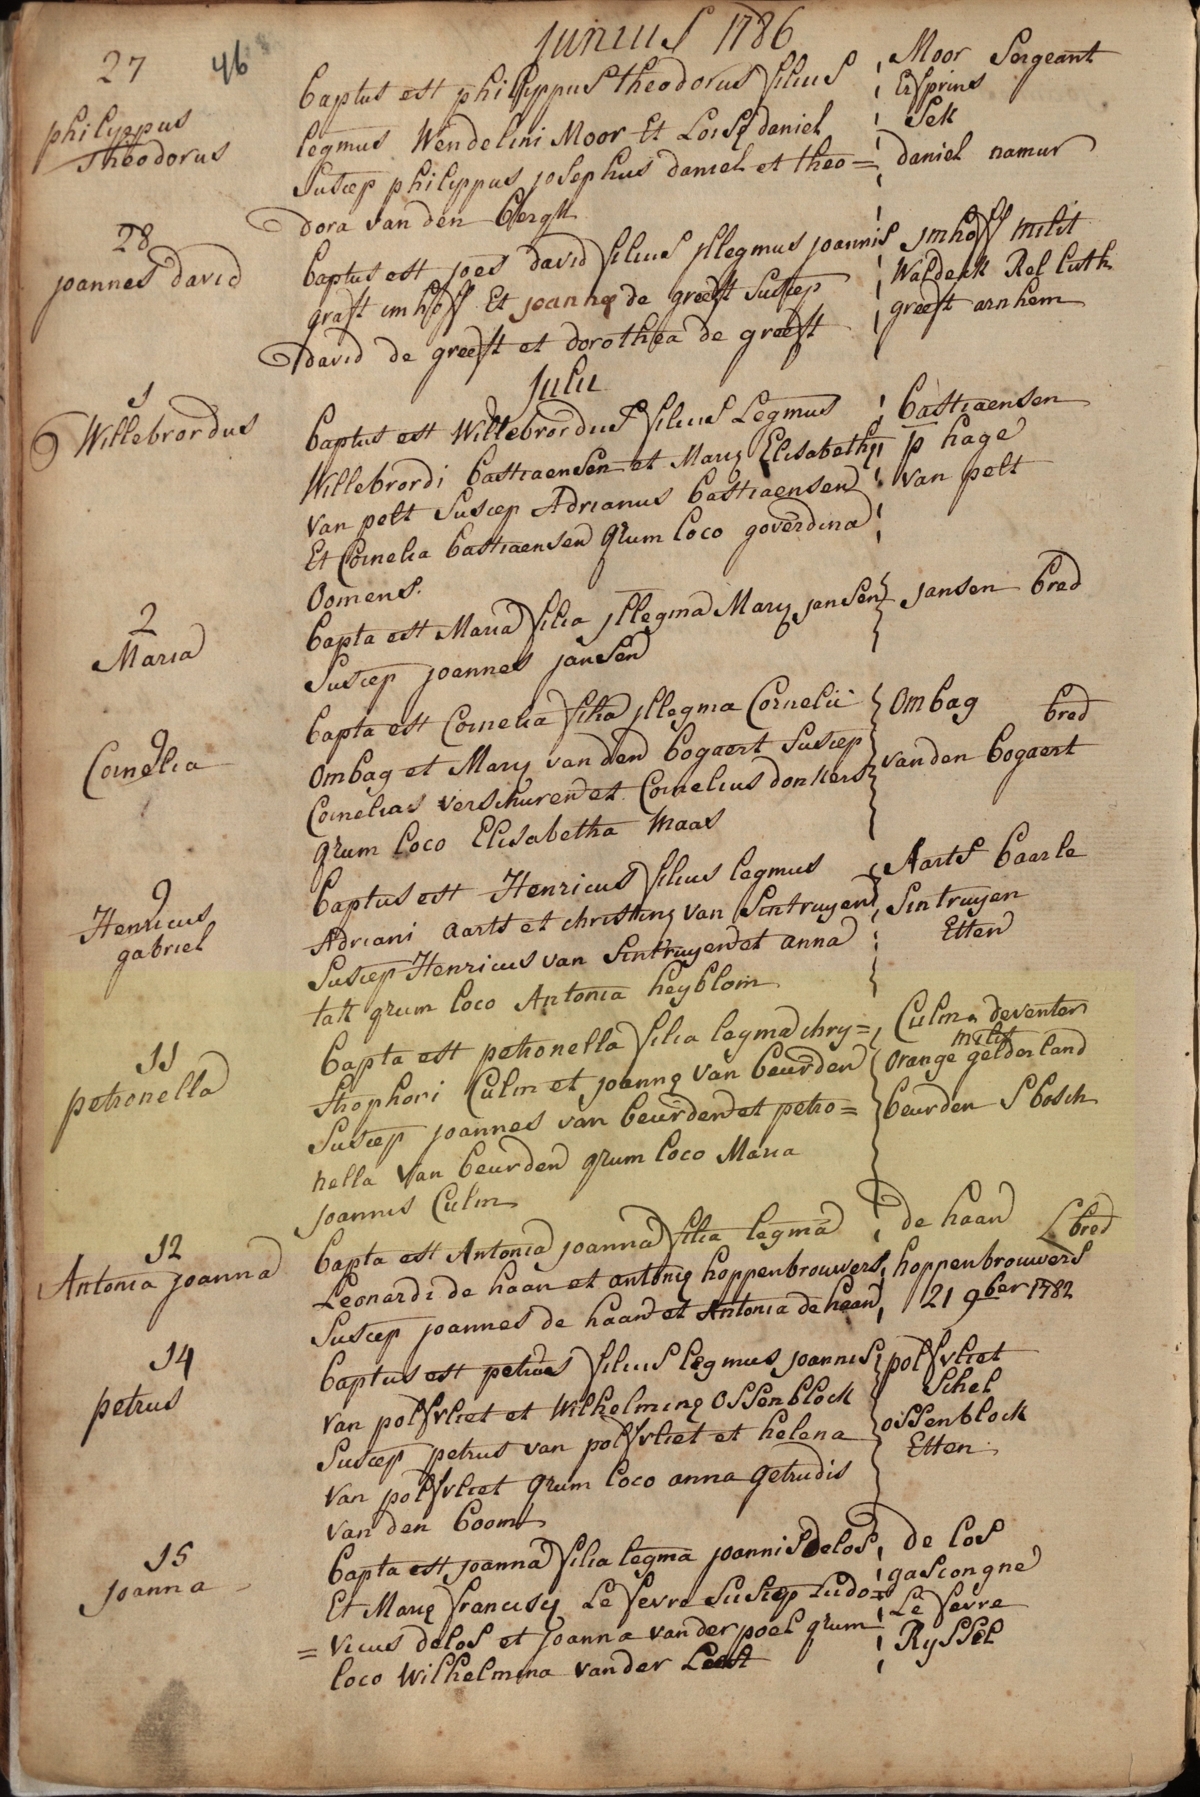 Junius 1786
27 46
philippus
Theodorus
baptus est philippus theodorus filius
legmus Wendelini Moor Et Loisę daniel
Suscep philippus josephus daniel et theo=
dora van den bergh
Moor Sergeant
daniel namur
28
joannes david
baptus est joes david filius jllegmus joannis
graft imhoff Et joannę de greeft Suscep
david de greeft et dorothea de greeft
jmhoff milit
Waldeck Rel Luth
greeft arnhem
Julii
1
Willebrordus
baptus est Willebrordus filius Legmus
Willebrordi bastiaensen et Marię Elisabethę
van pelt Suscep Adrianus bastiaensen
Et Cornelia bastiaensen qrum loco goverdina
Oomens.
bastiaensen
p hage
van pelt
2
Maria
bapta est Maria filia jllegma Marię jansen
Suscep joannes jansen
jansen bred
9
Cornelia
bapta est Cornelia filia jllegma Cornelii
Ombag et Marię van den bogaert Suscep
Cornelias verschuren et Cornelius donkers
qrum loco Elisabetha Maas
Ombag bred
van den bogaert
9
Henricus
gabriel
baptus est Henricus filius legmus
Adriani aarts et christinę van Sintruyen
Suscep Henricus van Sintruyen et anna
tak qrum loco Antonia heyblom
Aarts baarle
Sintruyen
Etten
11
petronella
bapta est petronella filia legma chry=
Strophori Culm et joannę van beurden
Suscep joannes van beurden et petro=
nella van beurden qrum loco Maria
joannis Culm
Culm deventer
milit
orange gelderland
beurden S bosch
12
Antonia joanna
bapta est Antonia joanna filia legma
Leonardi de haan et antonię hoppenbrouwers
Suscep joannes de haan et Antonia de haan
de haan bred
hoppenbrouwers
21 9ber 1782
14
petrus
baptus est petrus filius legmus joannis
van polfvliet et Wilhelminę Ossenblock
Suscep petrus van polfvliet et helena
van polfvliet qrum loco anna getrudis
van den boom
polfvliet
Schel
ossenblock
Etten
15
joanna
bapta est joanna filia legma joannis delos
Et Marię franciscę Le fevre Suscep Ludo=
=vicus delos et joanna van der poel qrum
loco Wilhelmina van der Leest
de los
gascongne
Le fevre
Ryssel